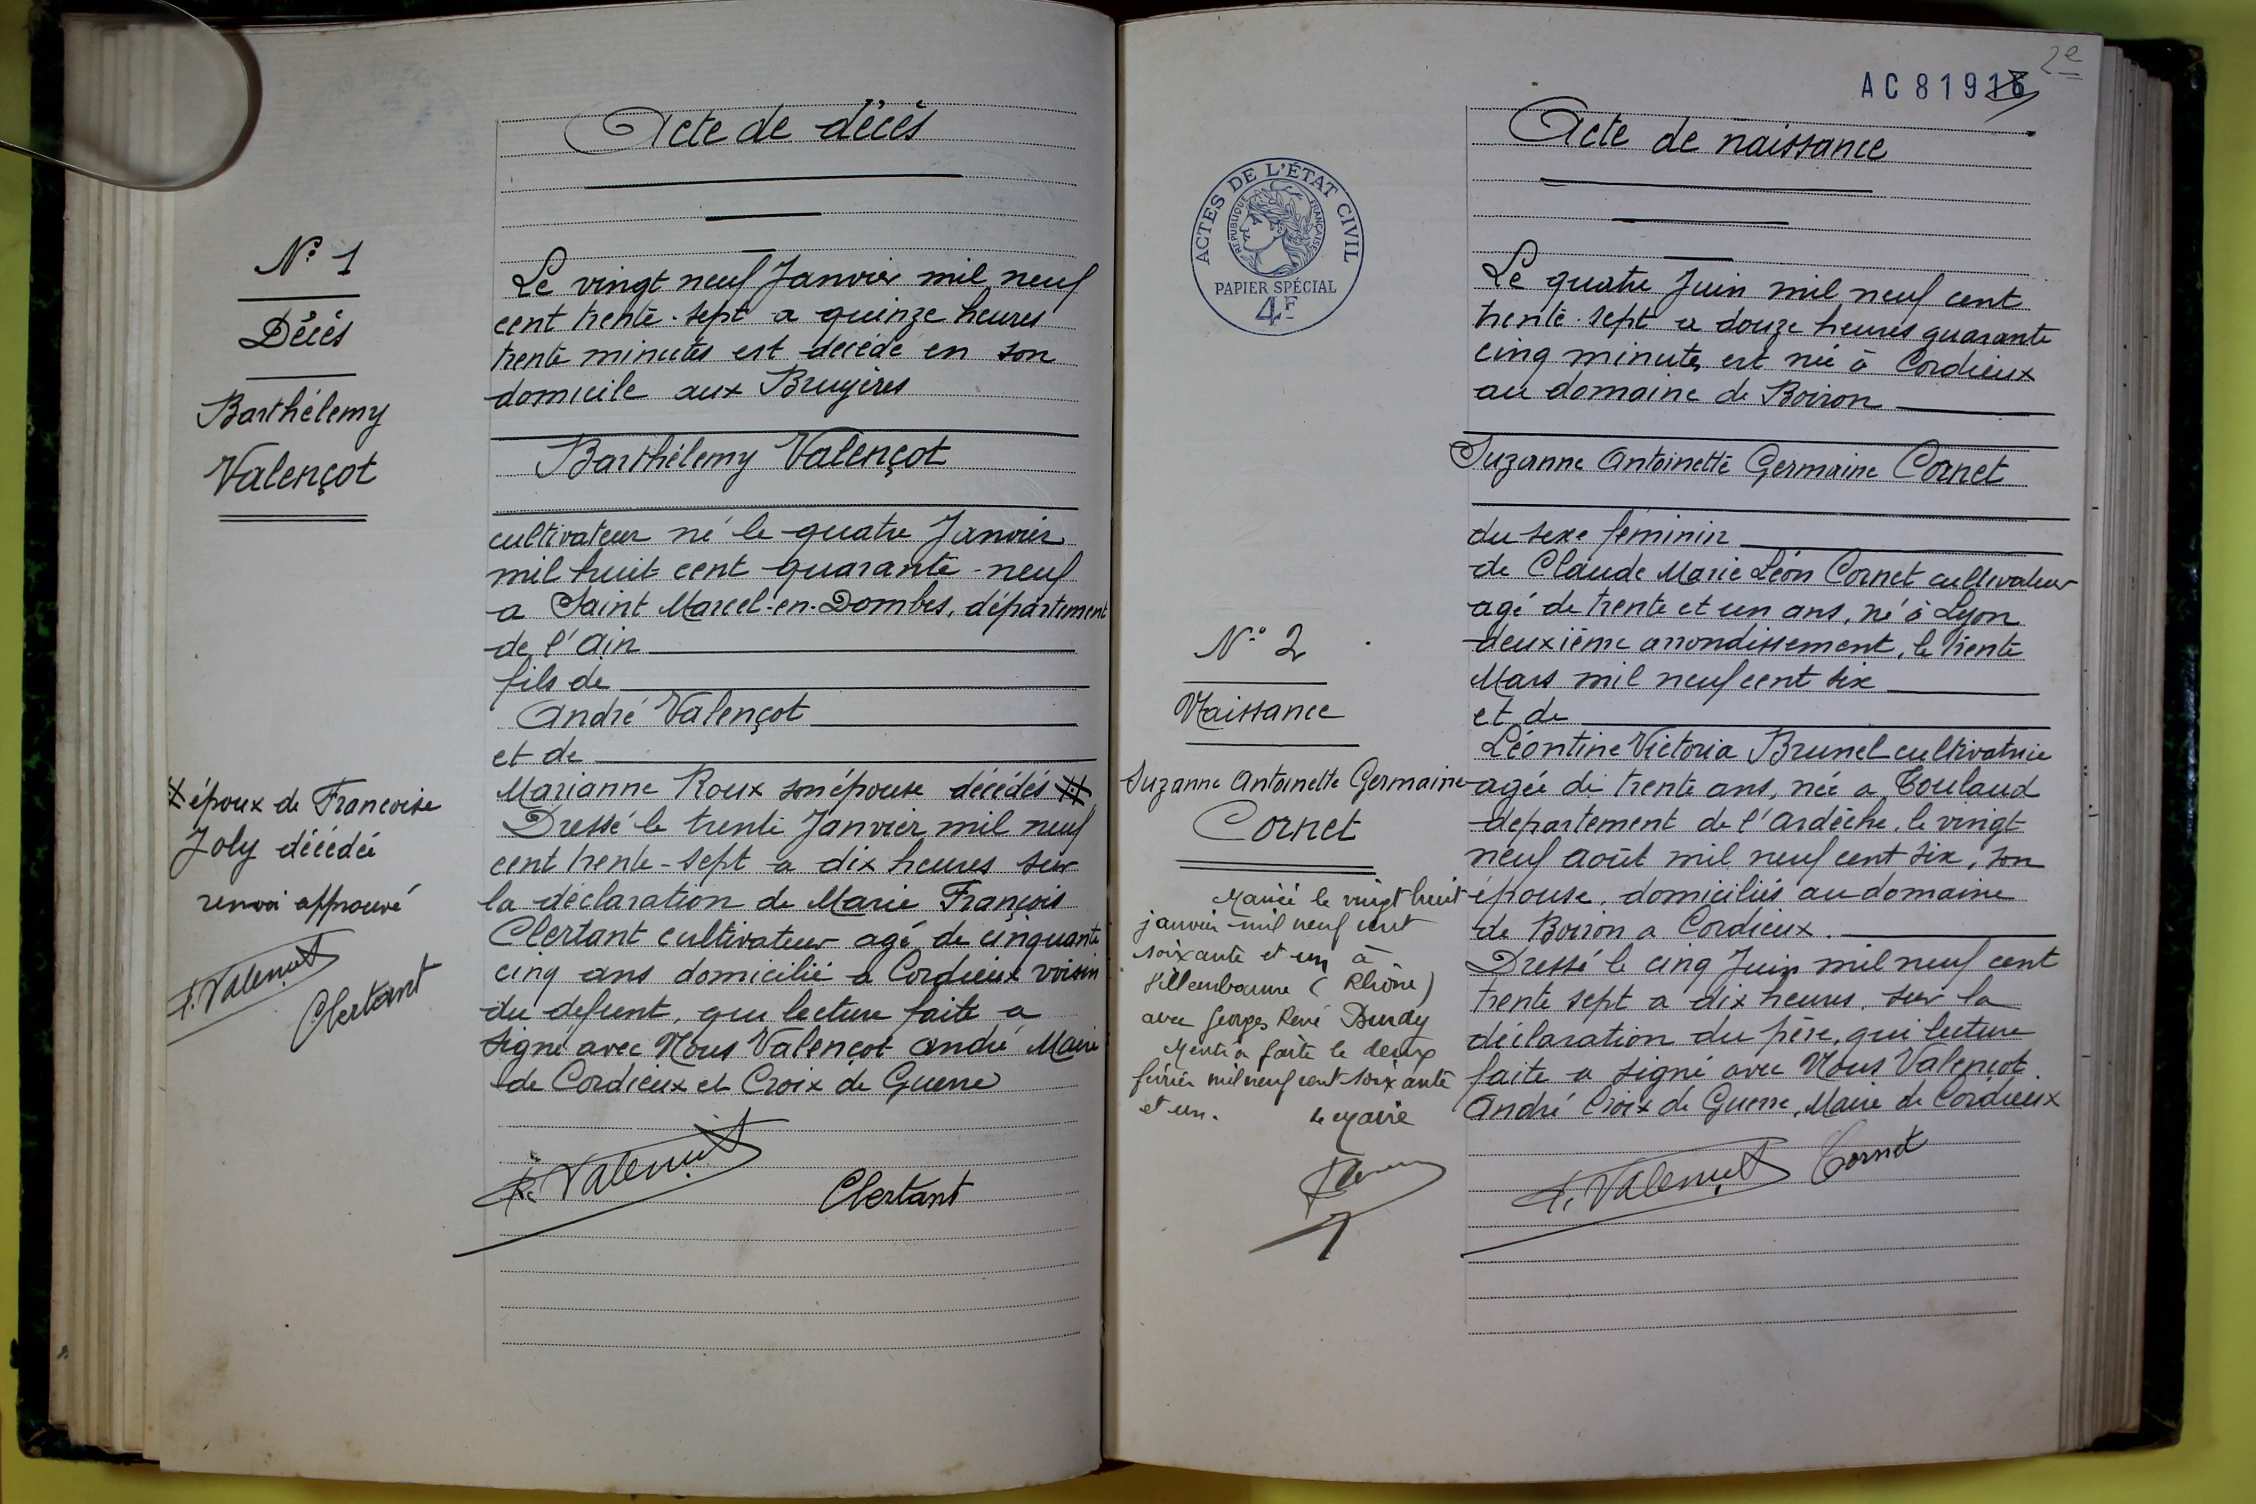 Acte de décès
N° 1
Décès
Barthélemy
Valençot
Le vingt neuf Janvier mil neuf
cent trente-sept a quinze heures
trente minutes est décédé en son
domicile aux Bruyères
Barthélemy Valençot
cultivateur né le quatre Janvier
mil huit cent quarante-neuf
a Saint Marcel-en-Dombes, département
de l'Ain
fils de
André Valençot
et de
Marianne Roux son épouse décédés
Dressé le trente Janvier mil neuf
cent trente-sept a dix heures sur
la déclaration de Marie François
Clertant cultivateur agé de cinquante
cinq ans domicilié a Cordieux voisin
du défunt, qui lecture faite a
signé avec Nous Valençot André Maire
de Cordieux et Croix de Guerre
A. Valençot
Clertant
X époux de Francoise
Joly décédée
renvoi approuvé
A. Valençot
Clertant
2e
AC 8191
Acte de naissance
ACTES DE L'ÉTAT CIVIL
RÉPUBLIQUE FRANÇAISE
PAPIER SPÉCIAL
4F
Le quatre Juin mil neuf cent
trente-sept a douze heures quarante
cinq minutes est née à Cordieux
au domaine de Boiron
Suzanne Antoinette Germaine Cornet
du sexe féminin
de Claude Marie Léon Cornet cultivateur
agé de trente et un ans, né à Lyon
deuxième arrondissement, le trente
Mars mil neuf cent six
et de
Léontine Victoria Brunel cultivatrice
agée de trente ans, née a Toulaud
département de l'Ardèche, le vingt
neuf août mil neuf cent six, son
épouse, domiciliés au domaine
de Boiron a Cordieux.
Dressé le cinq Juin mil neuf cent
trente sept a dix heures, sur la
déclaration du père, qui lecture
faite a signé avec Nous Valençot
André Croix de Guerre, Maire de Cordieux
A. Valençot
Cornet
N° 2
Naissance
Suzanne Antoinette Germaine
Cornet
Mariée le vingt huit
janvier mil neuf cent
soixante et un à
Villeurbanne (Rhône)
avec Georges René
Mention faite le deux
février mil neuf cent soixante
et un.
Le Maire